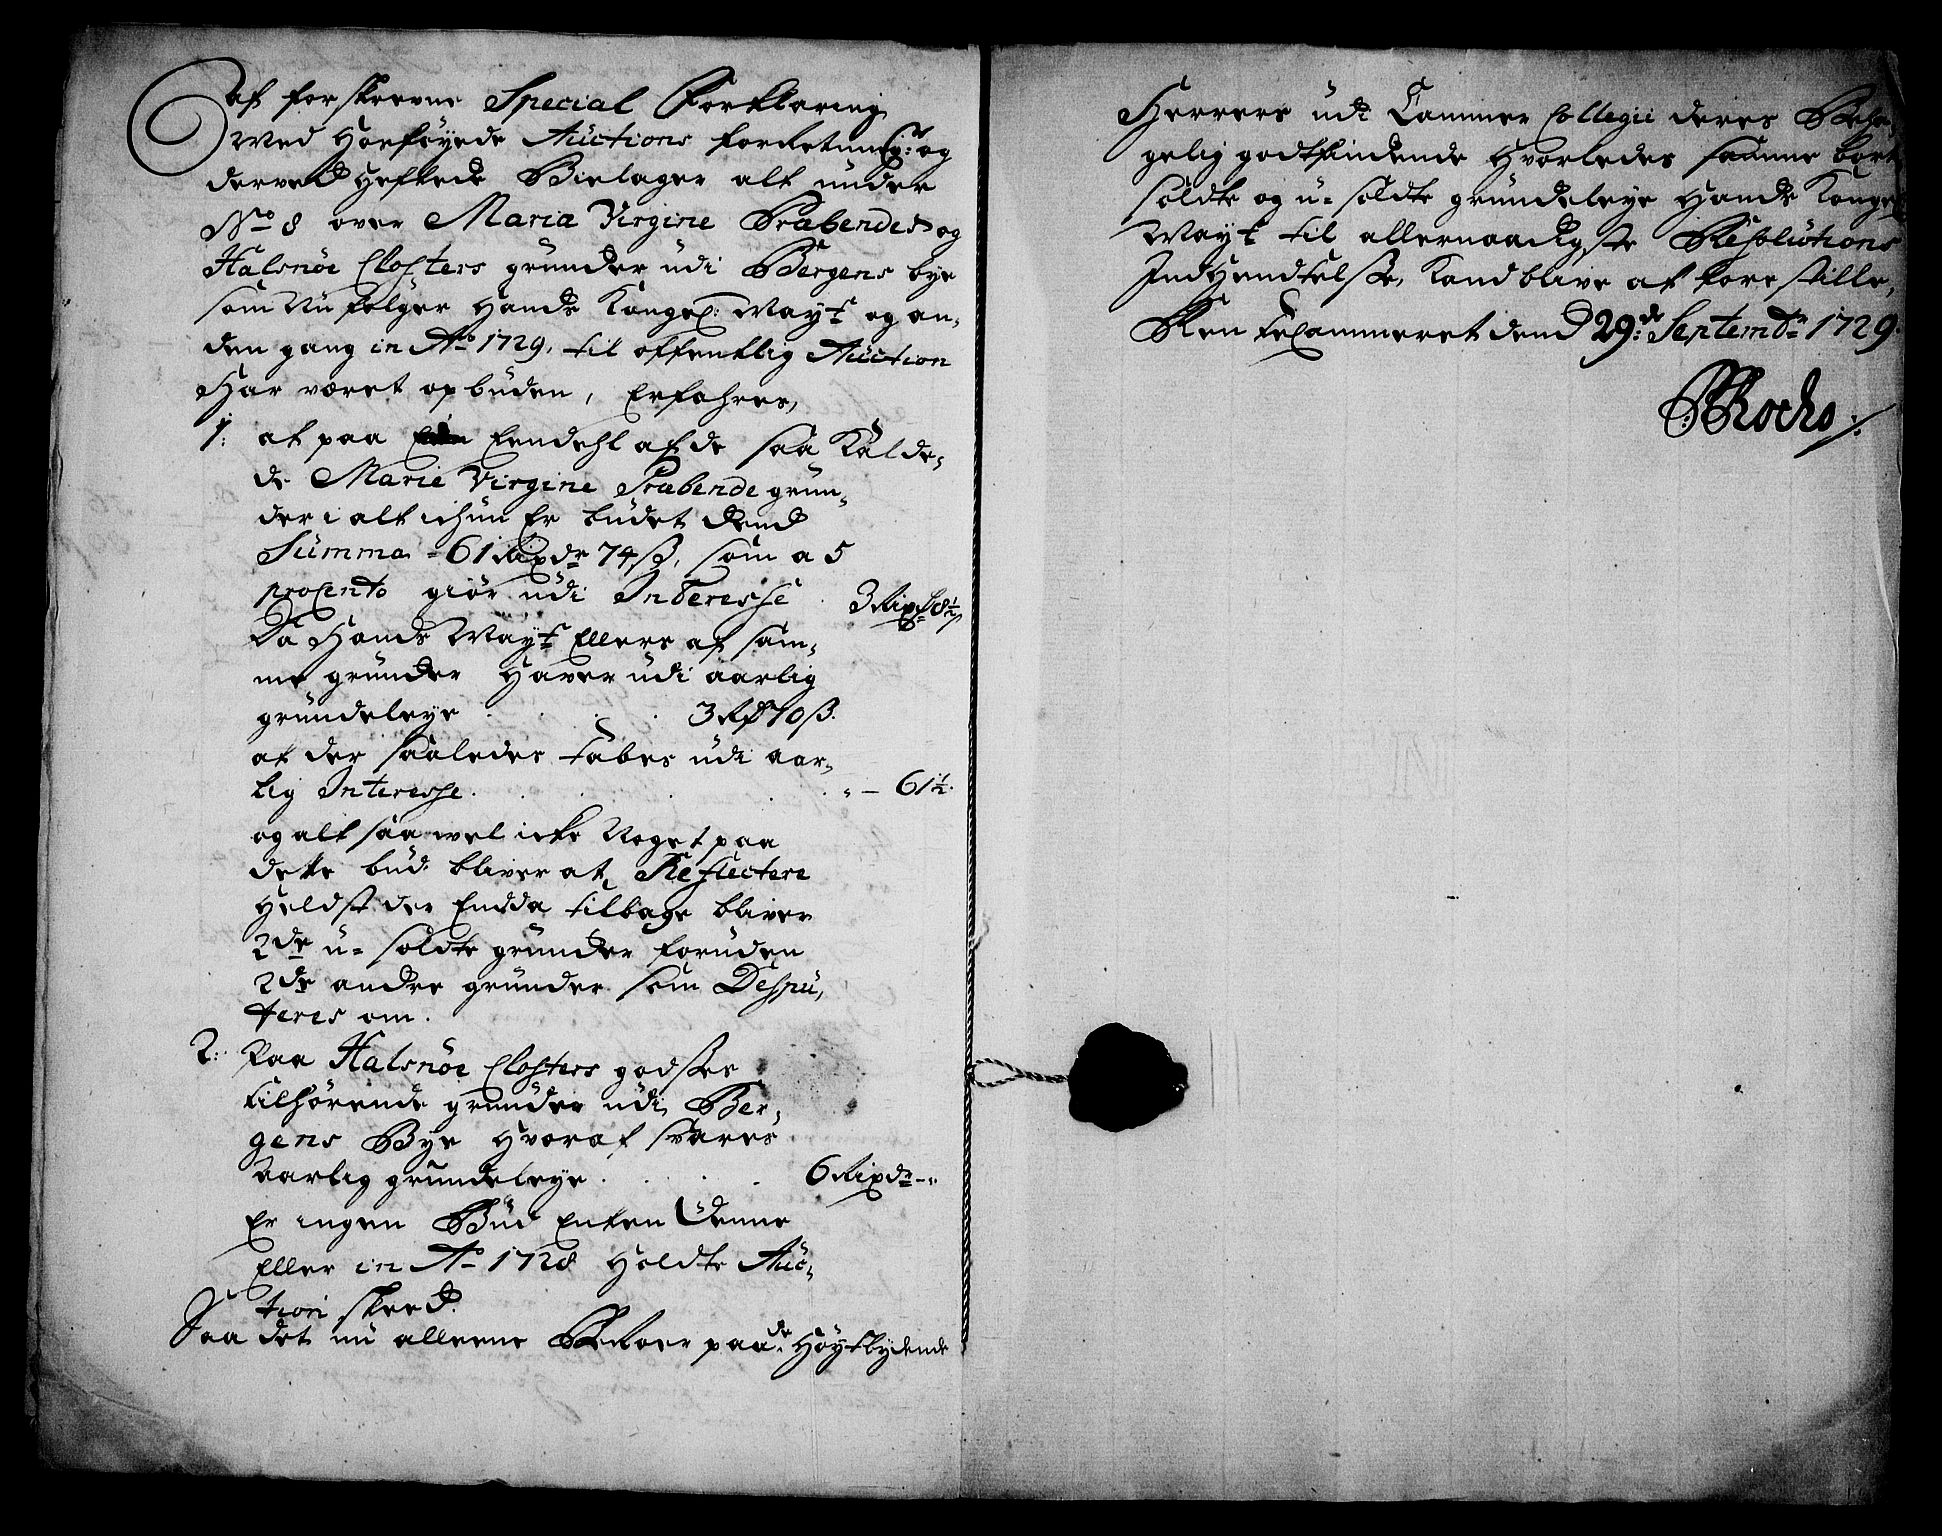 af forskreevne Special Forklaring
Med Hosføyede Auctions forretning: og
derved Heftede Bielager alt under
No 8 over Maria Virgine Præbendes og
Halsnöe Closters grunder udi Bergens bye
som Nu følger Hands Kongel: Mayt og an,
den gang in Ao 1729, til offentlig Auction
Har været opbuden, Erfahres,
1: at paa Eendehl af de saa Kalde,
de Marie Virgine Præbende grun,
der i alt ichun Er budet dend
Summa - 61 Rixdr 74 ß, som a 5
proCento giør udi Interesse . 3 Rixdr 8½
Da Hands Mayt Ellers af sam,
me grunder Haver udi aarlig
grundeleye . . . . 3 Rd 70 ß.
at der saaledes tabes udi aar,
lig Interesse . . . . . " - 61½.
og alt saa vel icke Noget paa
dette bud bliver at Reflectere
Heldst der Endda tilbage bliver
2de u-soldte grunder foruden
2de andre grunder som Dispu,
teres om.
2: Paa Halsnöe Closters godtses
tilhørende grunder udi Ber,
gens Bye Hvoraf svares
Aarlig grundeleye . . . . 6 Rixdr - "
Er ingen Bud Enten denne
Eller in Ao 1728 Holdte Auc,
tion skeed.
Saa det nu alleene Beroer paa de Höytbydende
Herrers udi Cammer Collegii deres Beha,
gelig godtfindende Hvorledes samme bort
soldte og u-soldte grundeleye Hands Kongel
Mayt til allernaadigste Resolutions
IndHendtelse, Kand blive at forestille,
RenteCammeret dend 29de Septembr 1729.